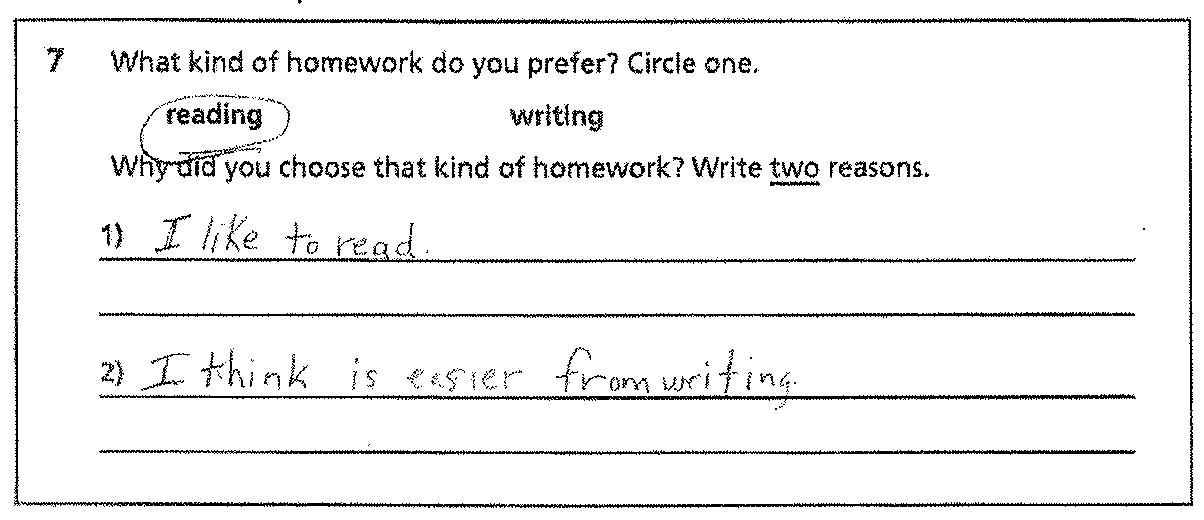 7 What kind of homework do you prefer? Circle one.
reading writing
Why did you choose that kind of homework? Write two reasons.
1) I like to read.
2) I think is easier from writing.